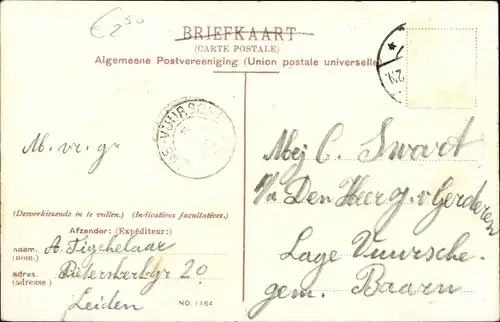 € 2,50
BRIEFKAART
(CARTE POSTALE)
Algemeene Postvereeniging (Union postale universelle)
VUURSCHE
M. vr. gr
(Desverkiezende in te vullen.) (Indications facultatives.)
Afzender: (Expéditeur:)
naam. A. Tichelaar
(nom.)
adres. Pieterskerkgr 20
(adresse)
Leiden
NO. 1164
Mej C. Swart
p/a Den Heer G. v Gerderen
Lage Vuursche.
gem. Baarn